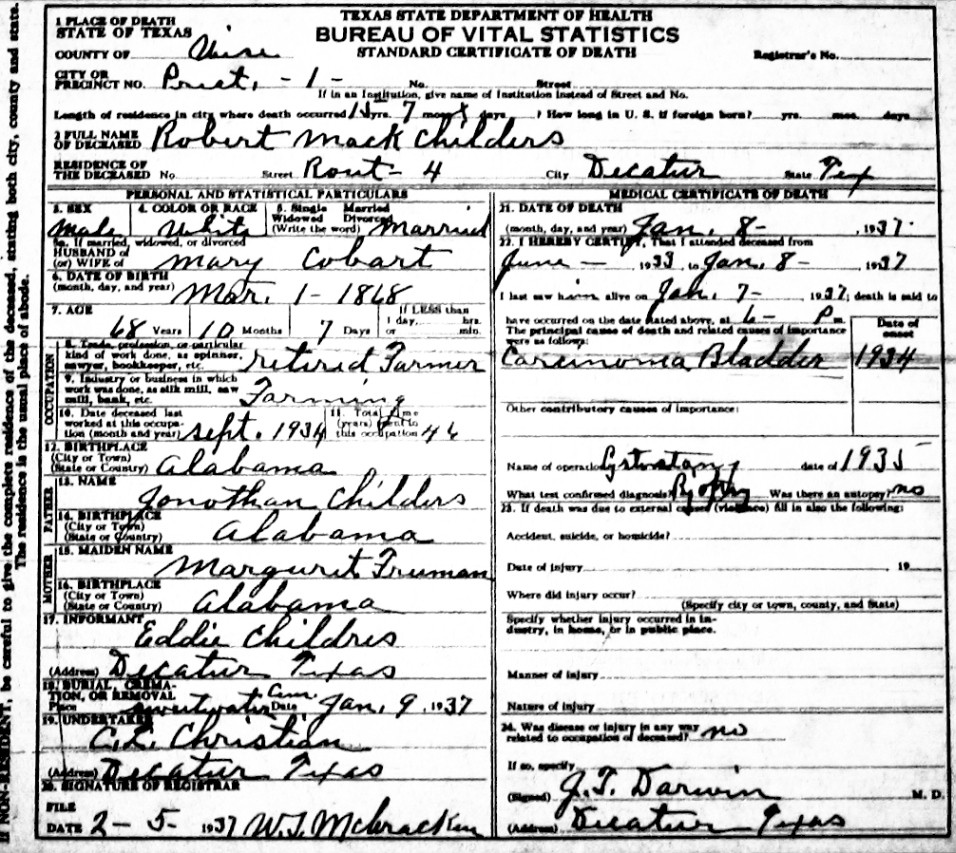 TEXAS STATE DEPARTMENT OF HEALTH
BUREAU OF VITAL STATISTICS
STANDARD CERTIFICATE OF DEATH
1 PLACE OF DEATH
STATE OF TEXAS
COUNTY OF Wise Registrar's No.
CITY OR PRECINCT NO. Prect. - 1 - No. Street
If in an Institution, give name of Institution instead of Street and No.
Length of residence in city where death occurred yrs. 7 mos. days ? How long in U. S. if foreign born? yrs. mos. days
2 FULL NAME OF DECEASED Robert Mack Childers
RESIDENCE OF THE DECEASED No. Street Rout - 4 City Decatur State Tex
PERSONAL AND STATISTICAL PARTICULARS
3. SEX 4. COLOR OR RACE 5. Single Married Widowed Divorced (Write the word)
Male White Married
5a. If married, widowed, or divorced
HUSBAND of (or) WIFE of Mary Cobart
6. DATE OF BIRTH
(month, day, and year) Mar. 1 - 1868
7. AGE If LESS than
68 Years 10 Months 7 Days 1 day, hrs. or min.
OCCUPATION
8. Trade, profession, or particular kind of work done, as spinner, sawyer, bookkeeper, etc. retired Farmer
9. Industry or business in which work was done, as silk mill, saw mill, bank, etc. Farming
10. Date deceased last worked at this occupation (month and year) Sept. 1934 11. Total time (years) spent in this occupation 46
12. BIRTHPLACE
(City or Town)
(State or Country) Alabama
FATHER
13. NAME Jonothan Childers
14. BIRTHPLACE
(City or Town)
(State or Country) Alabama
MOTHER
15. MAIDEN NAME Margurit Fruman
16. BIRTHPLACE
(City or Town)
(State or Country) Alabama
17. INFORMANT Eddie Childres
(Address) Decatur Texas
18. BURIAL, CREMATION, OR REMOVAL
Place Sweetwater Cem. Date Jan. 9, 1937
19. UNDERTAKER C.L. Christian
(Address) Decatur Texas
20. SIGNATURE OF REGISTRAR
FILE DATE 2 - 5 - 1937 W.T. McCracken
MEDICAL CERTIFICATE OF DEATH
21. DATE OF DEATH
(month, day, and year) Jan. 8 - , 1937.
22. I HEREBY CERTIFY, That I attended deceased from
June - , 1933, to Jan. 8 - 1937
I last saw him alive on Jan. 7 - 1937; death is said to
have occurred on the date stated above, at 6 - P m.
The principal cause of death and related causes of importance were as follows: Date of onset
Carcinoma Bladder 1934
Other contributory causes of importance:
Name of operation date of 1935
What test confirmed diagnosis? Was there an autopsy? no
23. If death was due to external causes (violence) fill in also the following:
Accident, suicide, or homicide?
Date of injury 19
Where did injury occur?
(Specify city or town, county, and State)
Specify whether injury occurred in industry, in home, or in public place.
Manner of injury
Nature of injury
24. Was disease or injury in any way related to occupation of deceased? no
If so, specify
(Signed) J.T. Darwin M. D.
(Address) Decatur Texas
If NON-RESIDENT, be careful to give the complete residence of the deceased, stating both city, county and state.
The residence is the usual place of abode.